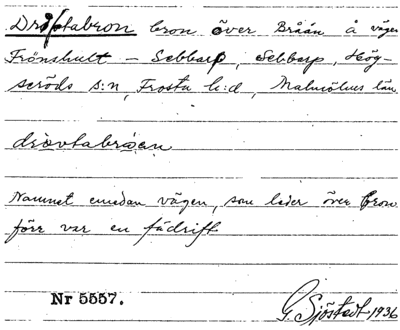 Dröftabron bron över Bråån å vägen
Frönshult – Sebbarp, Sebbarp, Hög-
seröds s:n, Frosta h:d, Malmöhus län
drøvtabrøen
Namnet emedan vägen, som leder över bron
förr var en fädrift
Nr 5557.
G. Sjöstedt 1936